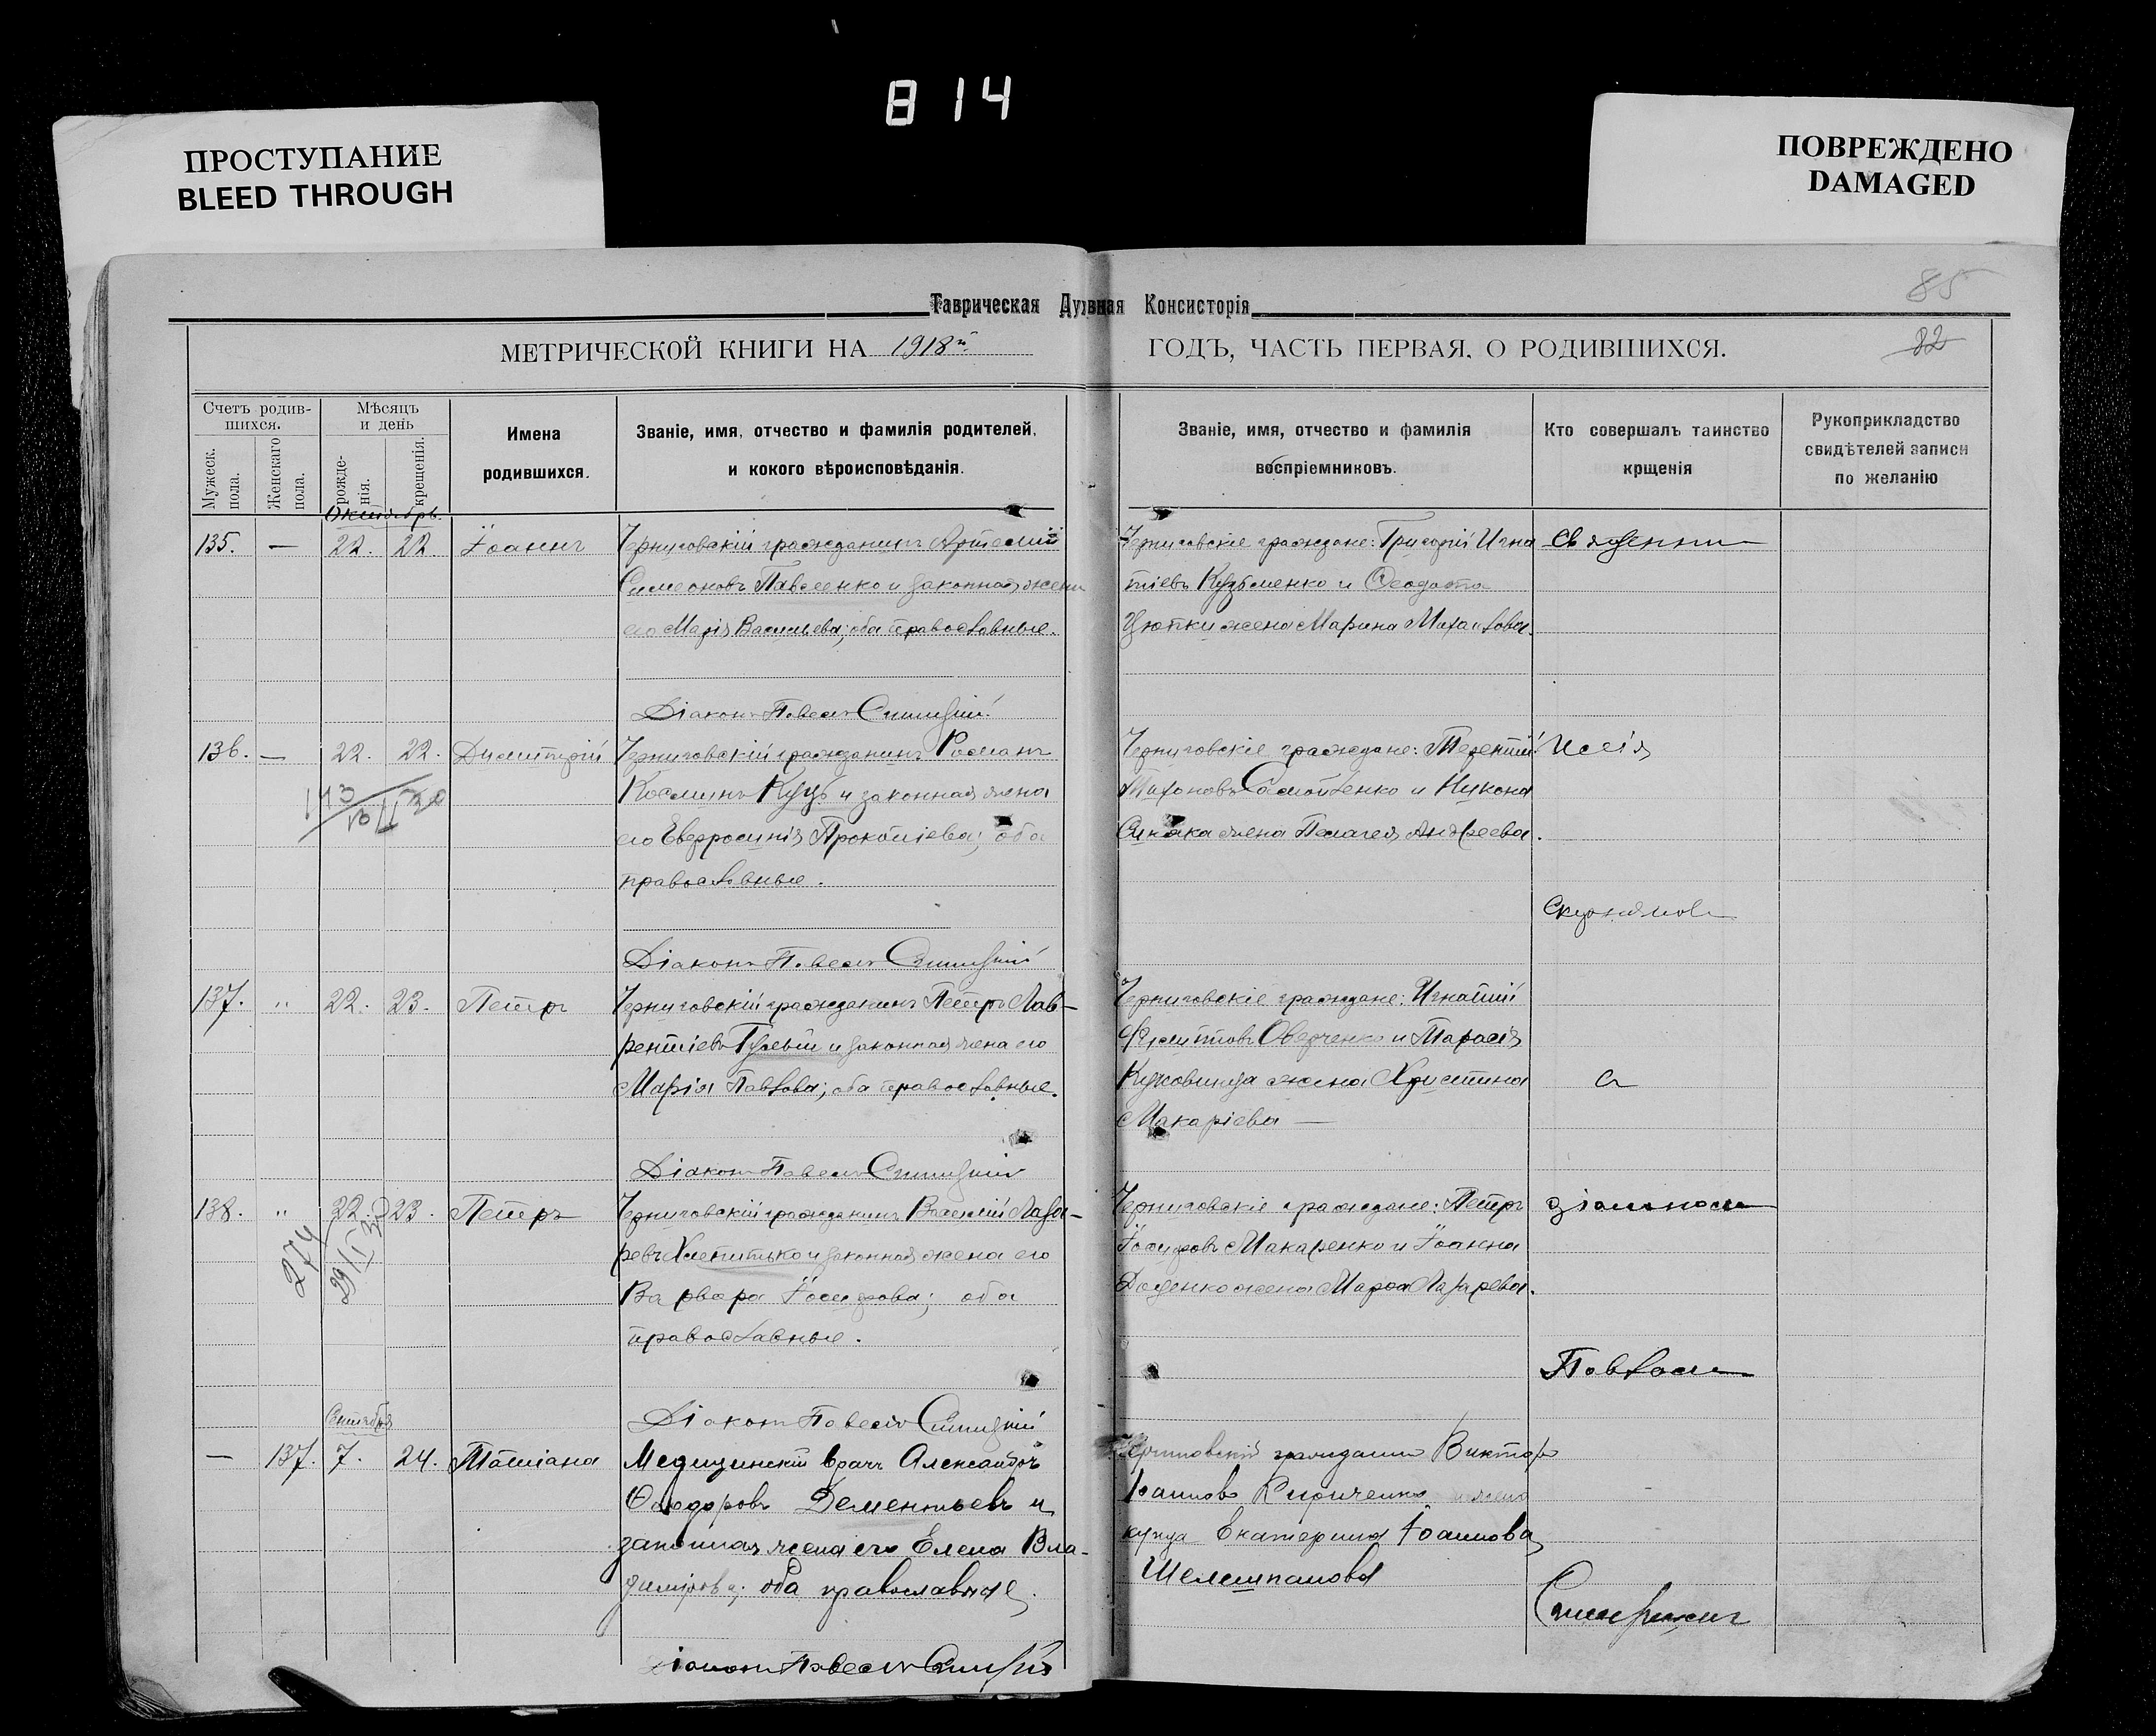 814
ПРОСТУПАНИЕ
BLEED THROUGH
ПОВРЕЖДЕНО
DAMAGED
85
Таврическая Духовная Консисторія
МЕТРИЧЕСКОЙ КНИГИ НА 1918й
ГОДЪ, ЧАСТЬ ПЕРВАЯ, О РОДИВШИХСЯ.
Счетъ родив-
шихся.
Мужеск.
пола.
Женскаго
пола.
Мѣсяцъ
и день
рожде-
нія.
крещенія.
Имена
родившихся.
Званіе, имя, отчество и фамилія родителей,
и кокого вѣроисповѣданія.
Званіе, имя, отчество и фамилія
воспріемниковъ.
Кто совершалъ таинство
крщенія
Рукоприкладство
свидѣтелей записи
по желанію
Октябрь.
135. — 22. 22. Іоаннъ
Черниговскій гражданинъ Артемій
Симеоновъ Павленко и законная жена
его Марія Васильева; оба православные.
Діаконъ Павелъ
Черниговскіе граждане: Григорій Игна
тіевъ Кузьменко и Ѳеодота
жена Марина Михаилова.
Священник
136. — 22. 22. Димитрій
143
Черниговскій гражданинъ Романъ
Косминъ Куцъ и законная жена
его Евфросинія Прокопіева; оба
православные.
Діаконъ Павелъ
Черниговскіе граждане: Терентій
Тихоновъ Самойленко и Никона
жена Пелагея Андреева.
Илія
137. " 22. 23. Петръ
Черниговскій гражданинъ Петръ Лав-
рентіевъ и законная жена его
Марія Павлова; оба православные.
Діаконъ Павелъ
Черниговскіе граждане: Игнатій
Оверченко и Тарасія
жена Христина
Макаріева —
съ
138. " 22. 23. Петръ
274
29/I 30
Черниговскій гражданинъ Василій Лаза-
ревъ и законная жена его
Варвара Іосифова; оба
православные.
Діаконъ Павелъ
Черниговскіе граждане: Петръ
Іосифовъ Макаренко и Іоанна
Доценко жена Марфа Лазарева.
діакономъ
Павломъ
Сентября
— 137. 7. 24. Татіана
Медицинскій врачъ Александръ
Ѳеодоровъ Дементьевъ и
законная жена его Елена Вла-
димірова; оба православные.
Діаконъ Павелъ
Черниговскій гражданинъ Викторъ
Іоанновъ Кириченко и жена
купца Екатерина Іоаннова